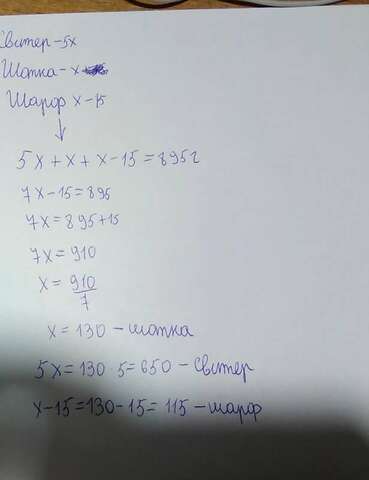 Свитер - 5x
Шапка - x
Шарф x - 15
5x + x + x - 15 = 895 г
7x - 15 = 895
7x = 895 + 15
7x = 910
x = 910/7
x = 130 - шапка
5x = 130 · 5 = 650 - Свитер
x - 15 = 130 - 15 = 115 - шарф